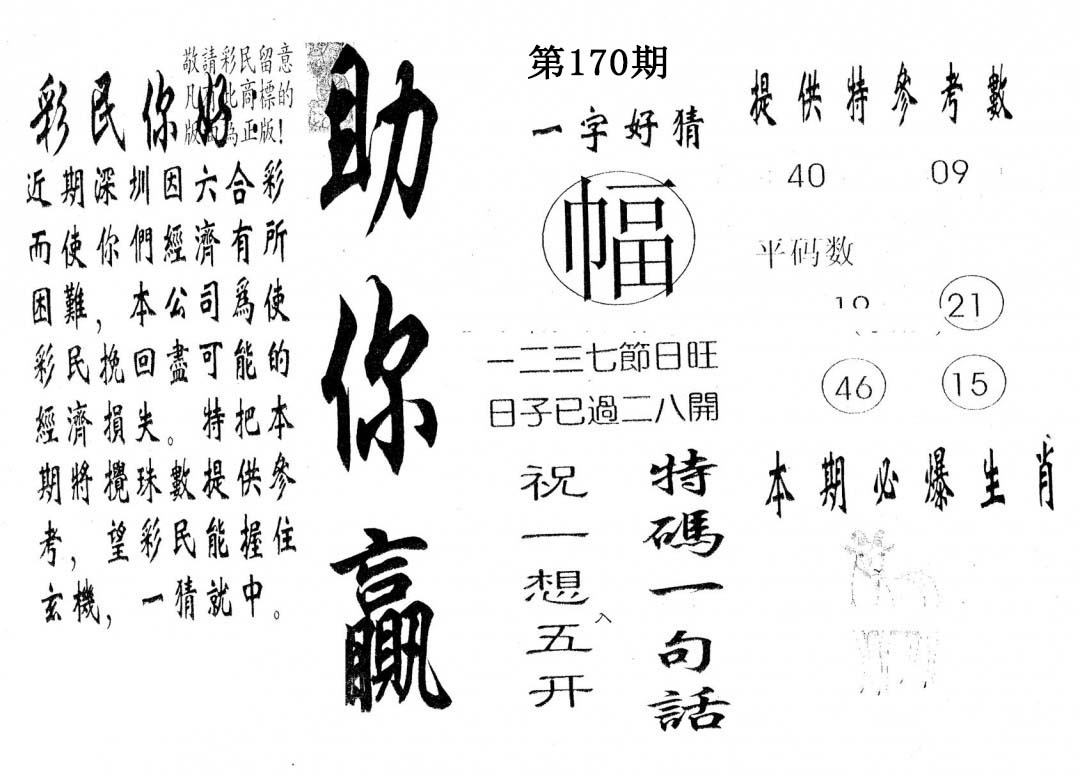 敬請彩民留意
凡 此商標的
版 為正版!
彩民你好
近期深圳因六合彩
而使你們經濟有所
困難，本公司爲使
彩民挽回盡可能的
經濟損失。特把本
期將攪珠數提供參
考，望彩民能握住
玄機，一猜就中。
助你贏
第170期
一字好猜
幅
一二三七節日旺
日子已過二八開
特碼一句話
祝一想五开
入
提供特參考數
40 09
平码数
19 21
46 15
本期必爆生肖